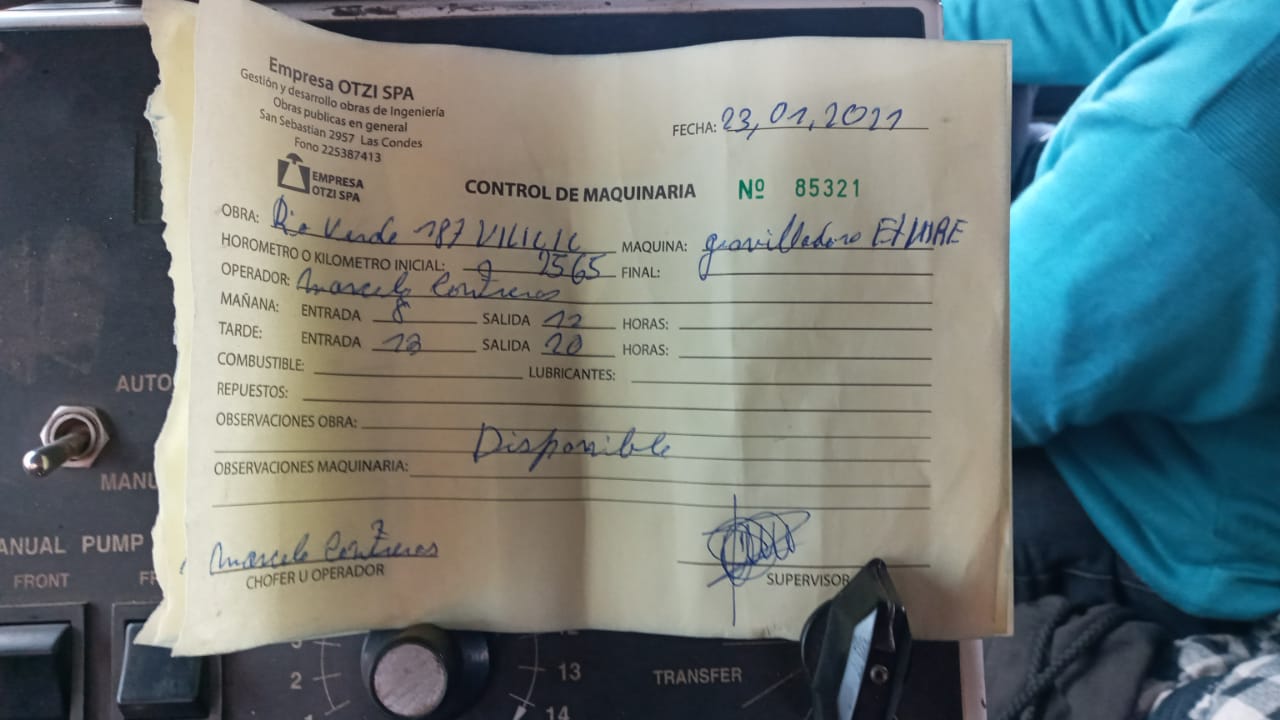 Empresa OTZI SPA
Gestión y desarrollo obras de Ingeniería
Obras publicas en general
San Sebastian 2957 Las Condes
Fono 225387413
EMPRESA
OTZI SPA
FECHA: 23,01,2021
CONTROL DE MAQUINARIA Nº 85321
OBRA: Rio Verde 187 MAQUINA: gravilladora
HOROMETRO O KILOMETRO INICIAL: 2565 FINAL:
OPERADOR: Marcelo Contreras
MAÑANA: ENTRADA 8 SALIDA 12 HORAS:
TARDE: ENTRADA 13 SALIDA 20 HORAS:
COMBUSTIBLE: LUBRICANTES:
REPUESTOS:
OBSERVACIONES OBRA:
Disponible
OBSERVACIONES MAQUINARIA:
Marcelo Contreras
CHOFER U OPERADOR
SUPERVISOR
AUTO
MANU
ANUAL PUMP
FRONT FR
2
13
14
TRANSFER